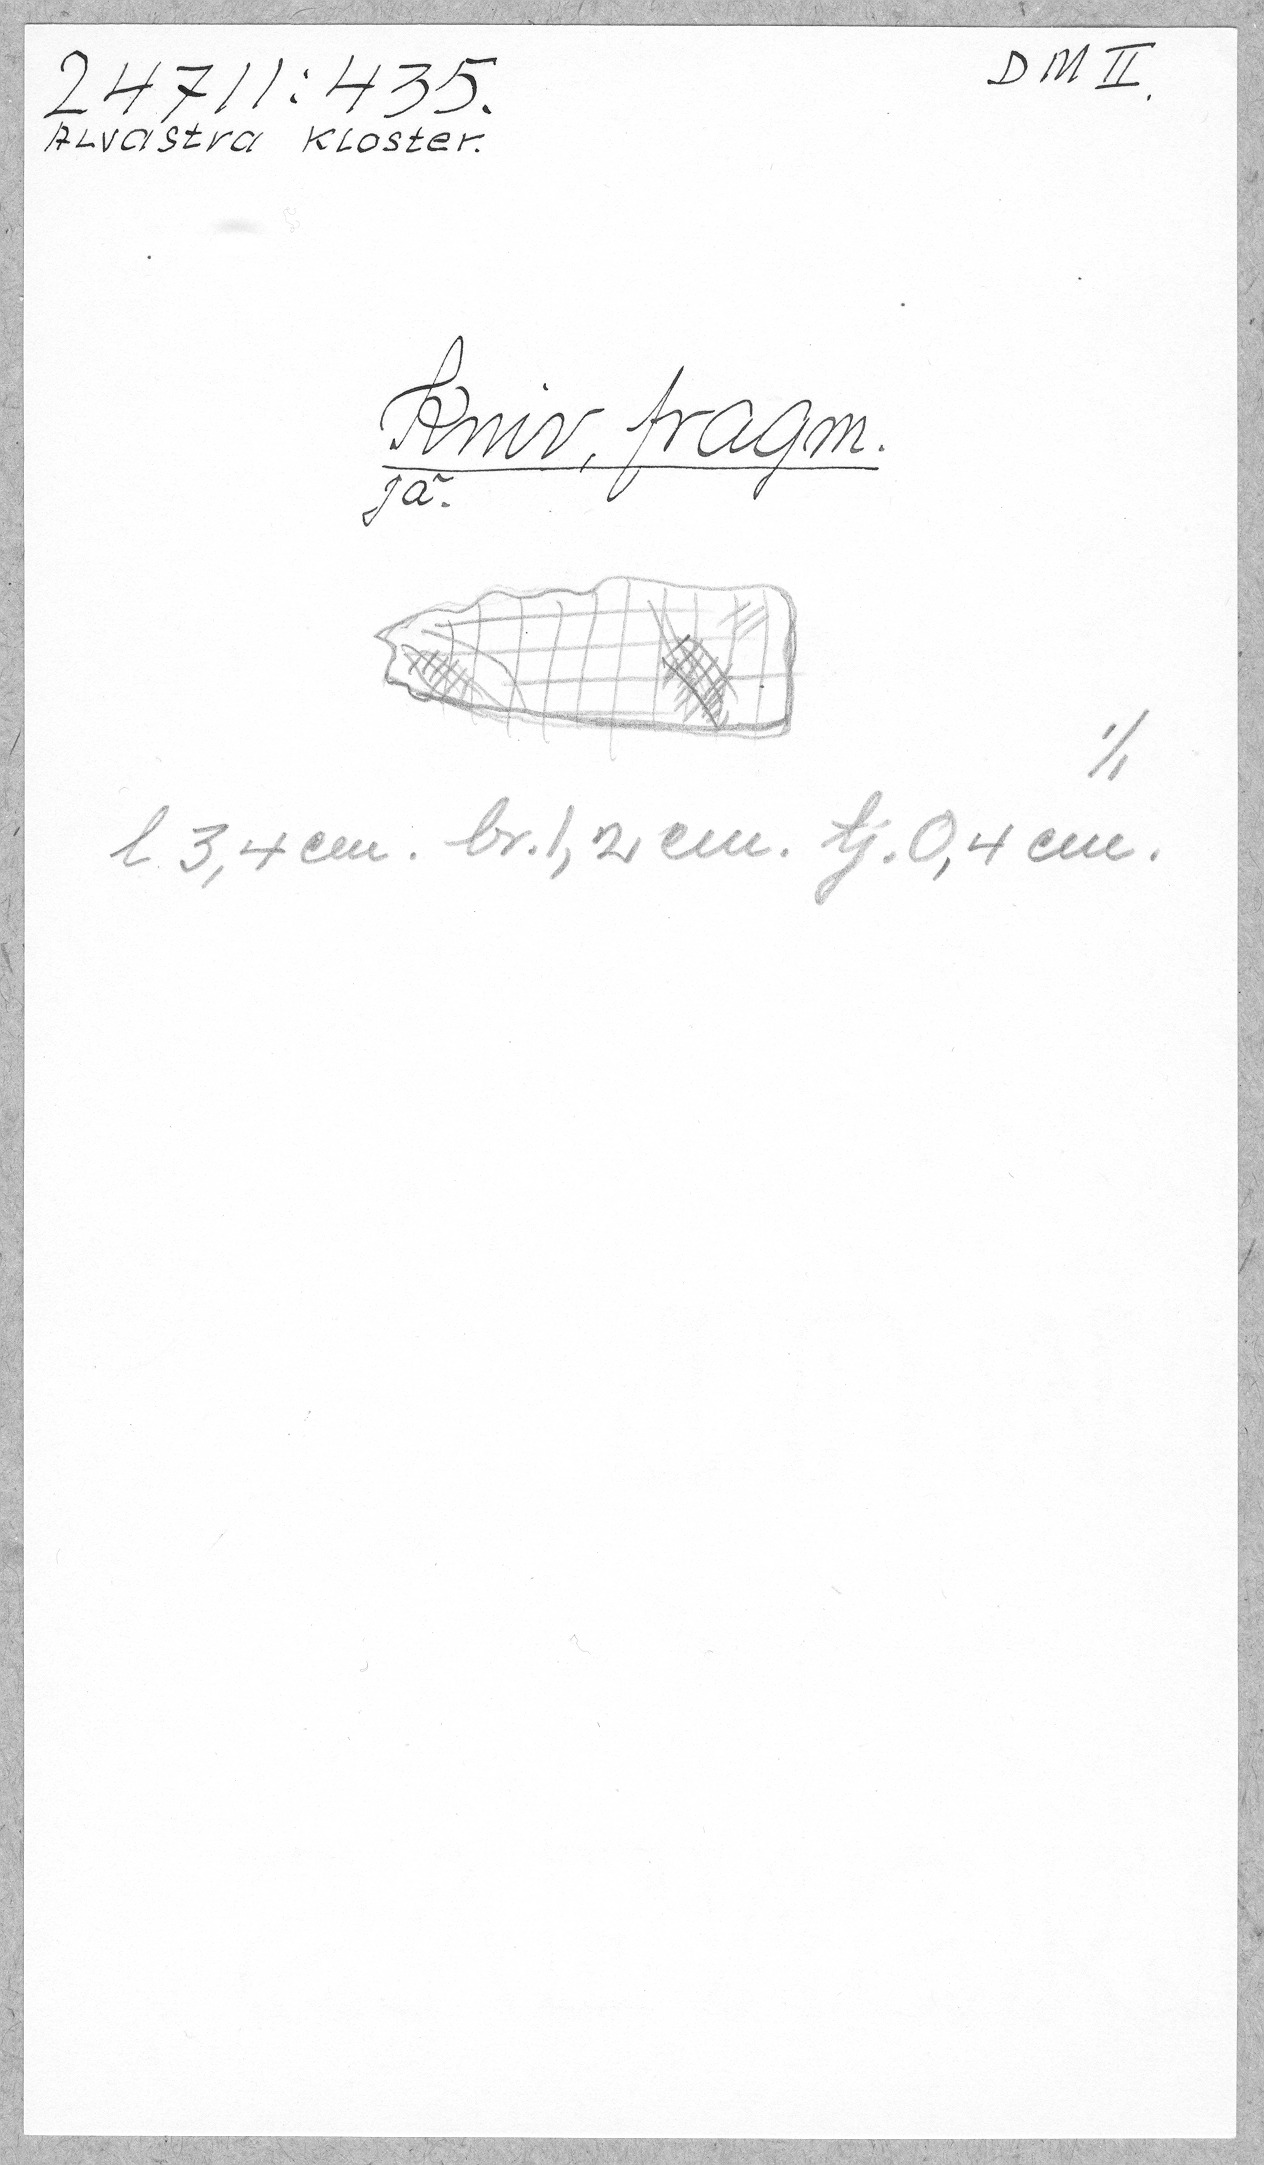 24711:435.
DM II.
Alvastra Kloster.
Kniv, fragm.
jä.
1/1
l. 3,4 cm. br. 1,2 cm. tj. 0,4 cm.